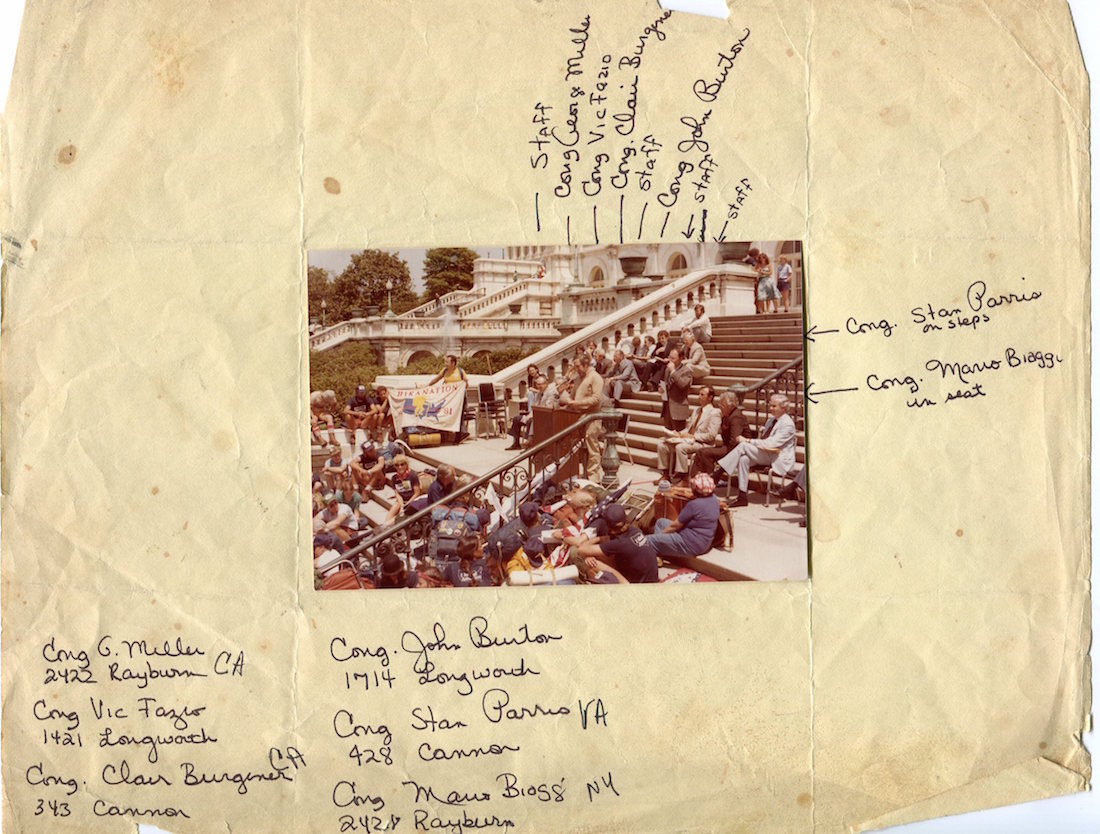 Staff
Cong George Miller
Cong Vic Fazio
Cong. Clair Burgener
staff
Cong John Burton
staff
staff
Cong. Stan Parris
on steps
Cong. Mario Biaggi
in seat
HIKANATION
81
Cong G. Miller
2422 Rayburn CA
Cong Vic Fazio
1421 Longworth
Cong. Clair Burgener CA
343 Cannon
Cong. John Burton
1714 Longworth
Cong Stan Parris VA
428 Cannon
Cong Mario Biagg NY
Rayburn